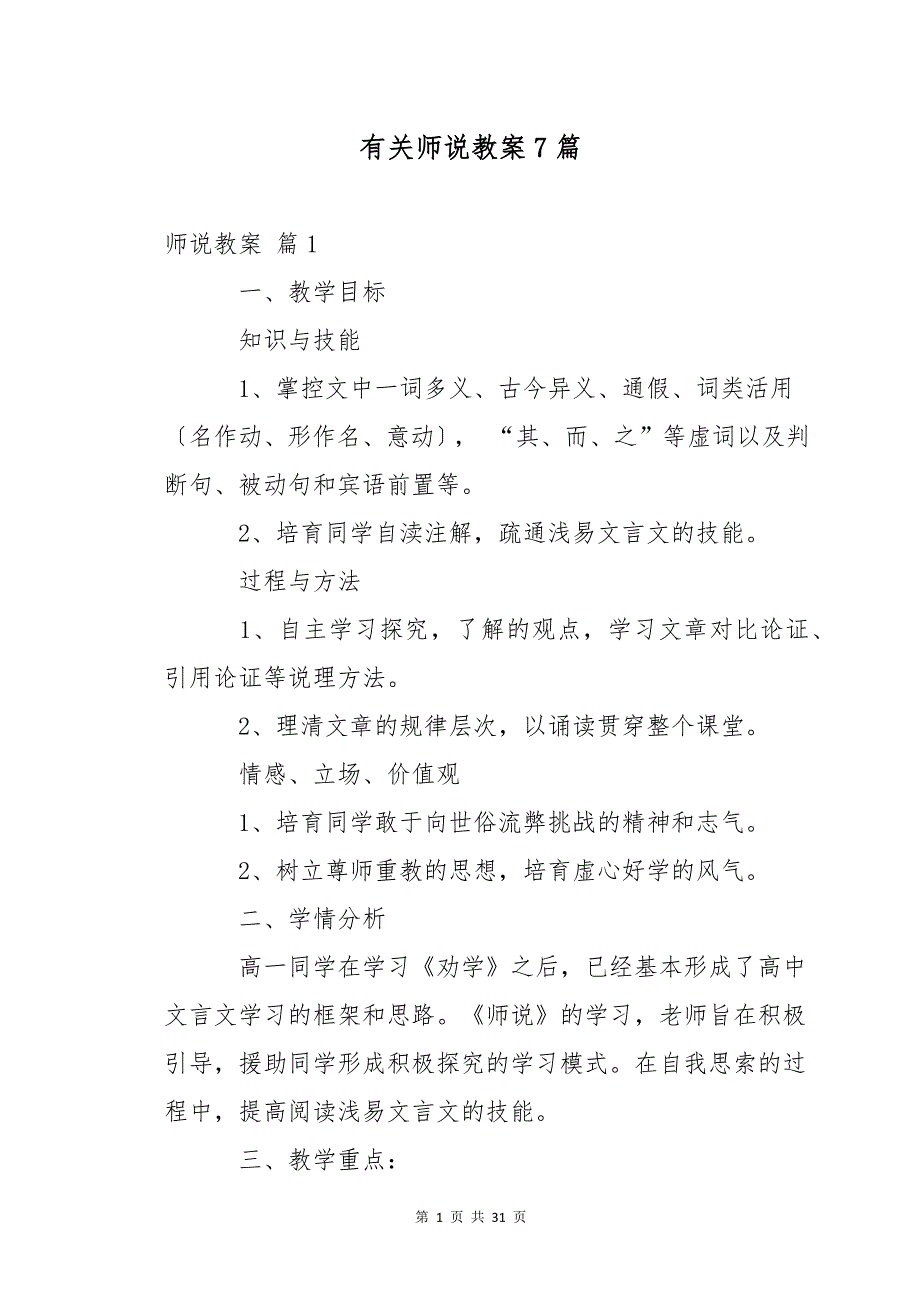 有关师说教案 7 篇
师说教案 篇 1
一、教学目标
知识与技能
1、掌控文中一词多义、古今异义、通假、词类活用
〔名作动、形作名、意动〕, “其、而、之”等虚词以及判
断句、被动句和宾语前置等。
2、培育同学自渎注解，疏通浅易文言文的技能。
过程与方法
1、自主学习探究，了解的观点，学习文章对比论证、
引用论证等说理方法。
2、理清文章的规律层次，以诵读贯穿整个课堂。
情感、立场、价值观
1、培育同学敢于向世俗流弊挑战的精神和志气。
2、树立尊师重教的思想，培育虚心好学的风气。
二、学情分析
高一同学在学习《劝学》之后，已经基本形成了高中
文言文学习的框架和思路。《师说》的学习，老师旨在积极
引导，援助同学形成积极探究的学习模式。在自我思索的过
程中，提高阅读浅易文言文的技能。
三、教学重点：
第 1 页 共 31 页